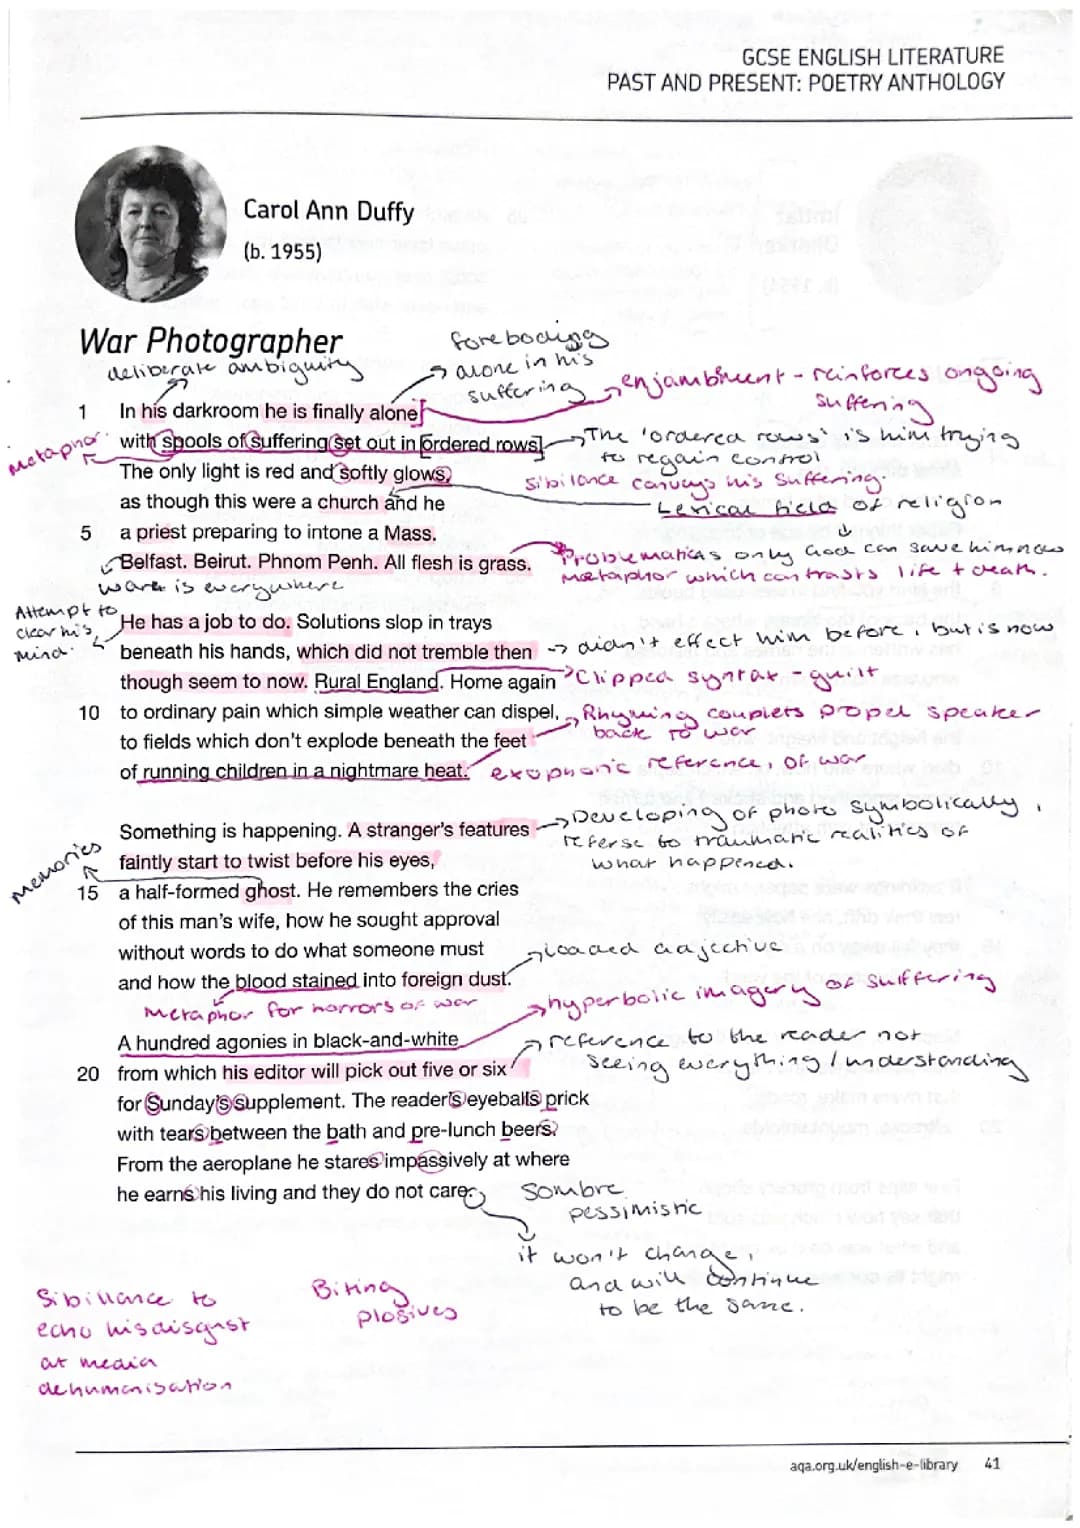 GCSE ENGLISH LITERATURE
PAST AND PRESENT: POETRY ANTHOLOGY
Carol Ann Duffy
(b. 1955)
War Photographer
deliberate ambiguity
foreboding
alone in his
suffering
enjambment - reinforces ongoing
suffering
1 In his darkroom he is finally alone
metaphor
with spools of suffering set out in ordered rows.
The 'ordered rows' is him trying
to regain control
The only light is red and softly glows,
sibilance conveys his suffering.
as though this were a church and he
Lexical field of religion
5 a priest preparing to intone a Mass.
Belfast. Beirut. Phnom Penh. All flesh is grass.
Problematics only God can save him now
metaphor which contrasts life + death.
wars is everywhere
Attempt to
clear his
mind.
He has a job to do. Solutions slop in trays
beneath his hands, which did not tremble then
didn't effect him before, but is now
though seem to now. Rural England. Home again
Clipped syntax - guilt
10 to ordinary pain which simple weather can dispel,
Rhyming couplets propel speaker
back to war
to fields which don't explode beneath the feet
of running children in a nightmare heat.
exophoric reference, of war
Something is happening. A stranger's features
Developing of photo symbolically,
referse to traumatic realities of
what happened.
faintly start to twist before his eyes,
memories
15 a half-formed ghost. He remembers the cries
of this man's wife, how he sought approval
without words to do what someone must
loaded adjective
and how the blood stained into foreign dust.
Metaphor for horrors of war
hyperbolic imagery of suffering
A hundred agonies in black-and-white
reference to the reader not
seeing everything / understanding
20 from which his editor will pick out five or six
for Sunday's supplement. The reader's eyeballs prick
with tears between the bath and pre-lunch beers.
From the aeroplane he stares impassively at where
he earns his living and they do not care.
Sombre
pessimistic
it won't change,
and will continue
to be the same.
Sibillance to
echo his disgust
at media
dehumanisation
Biting
plosives
aqa.org.uk/english-e-library 41